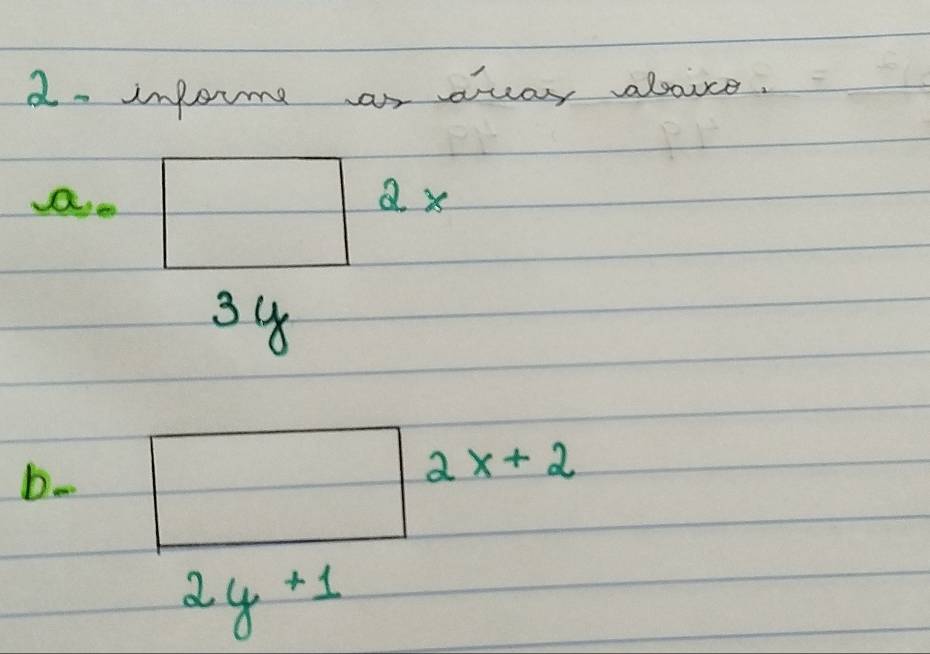 2- informe as áreas abaixo.
a- 2x
3y
b- 2x+2
2y+1